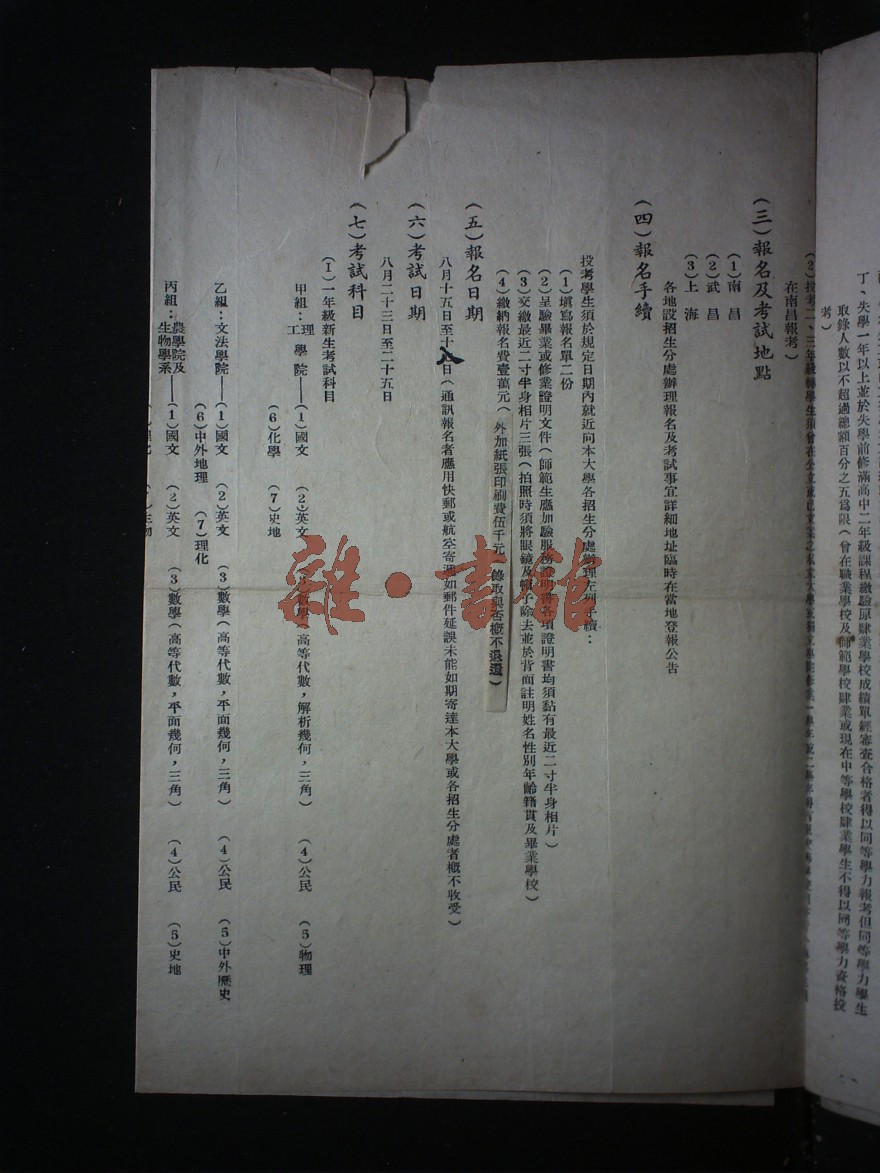 丁、失學一年以上並於失學前修滿高中二年級課程繳驗原肄業學校成績單經審查合格者得以同等學力報考但同等學力學生
取錄人數以不超過總額百分之五爲限（曾在職業學校及師範學校肄業或現在中等學校肄業學生不得以同等學力資格投
考）
(2)投考二、三年級轉學生須曾在公立或已立案之私立大學
在南昌報考）
（三）報名及考試地點
（1）南　昌
（2）武　昌
（3）上　海
各地設招生分處辦理報名及考試事宜詳細地址臨時在當地登報公告
（四）報名手續
投考學生須於規定日期內就近向本大學各招生分處辦理左列手續：
（1）填寫報名單二份
（2）呈驗畢業或修業證明文件（師範生應加驗服務證明書各項證明書均須黏有最近二寸半身相片）
（3）交繳最近二寸半身相片三張（拍照時須將眼鏡及帽子除去並於背面註明姓名性別年齡籍貫及畢業學校）
（4）繳納報名費壹萬元（外加紙張印刷費伍千元 錄取與否概不退還）
（五）報名日期
八月十五日至十八日（通訊報名者應用快郵或航空寄遞如郵件延誤未能如期寄達本大學或各招生分處者概不收受）
（六）考試日期
八月二十三日至二十五日
（七）考試科目
（I）一年級新生考試科目
甲組：理工學院——（1）國文　（2）英文　（3）數學（高等代數，解析幾何，三角）　（4）公民　（5）物理
（6）化學　（7）史地
乙組：文法學院——（1）國文　（2）英文　（3）數學（高等代數，平面幾何，三角）　（4）公民　（5）中外歷史
（6）中外地理　（7）理化
丙組：農學院及生物學系——（1）國文　（2）英文　（3）數學（高等代數，平面幾何，三角）　（4）公民　（5）史地
雜·書館